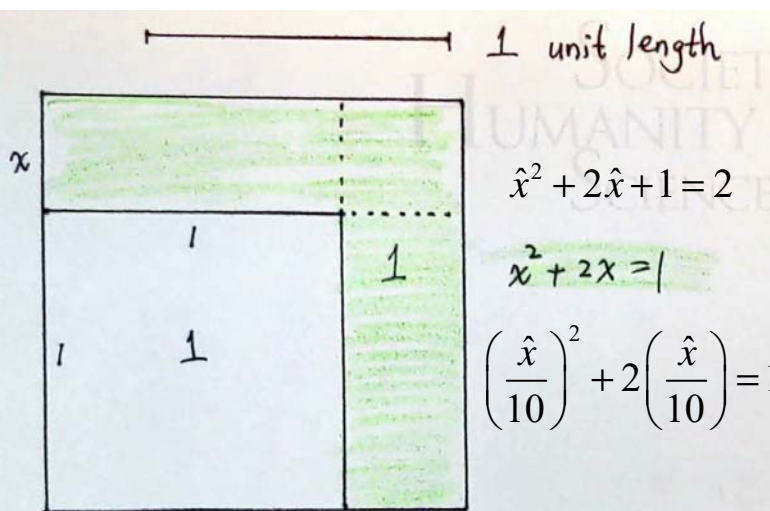 1 unit length
SOCIET
HUMANITY
SCIENCE
x
x̂² + 2x̂ + 1 = 2
1
1
x² + 2x = 1
1
1
(x̂/10)² + 2(x̂/10) = 1